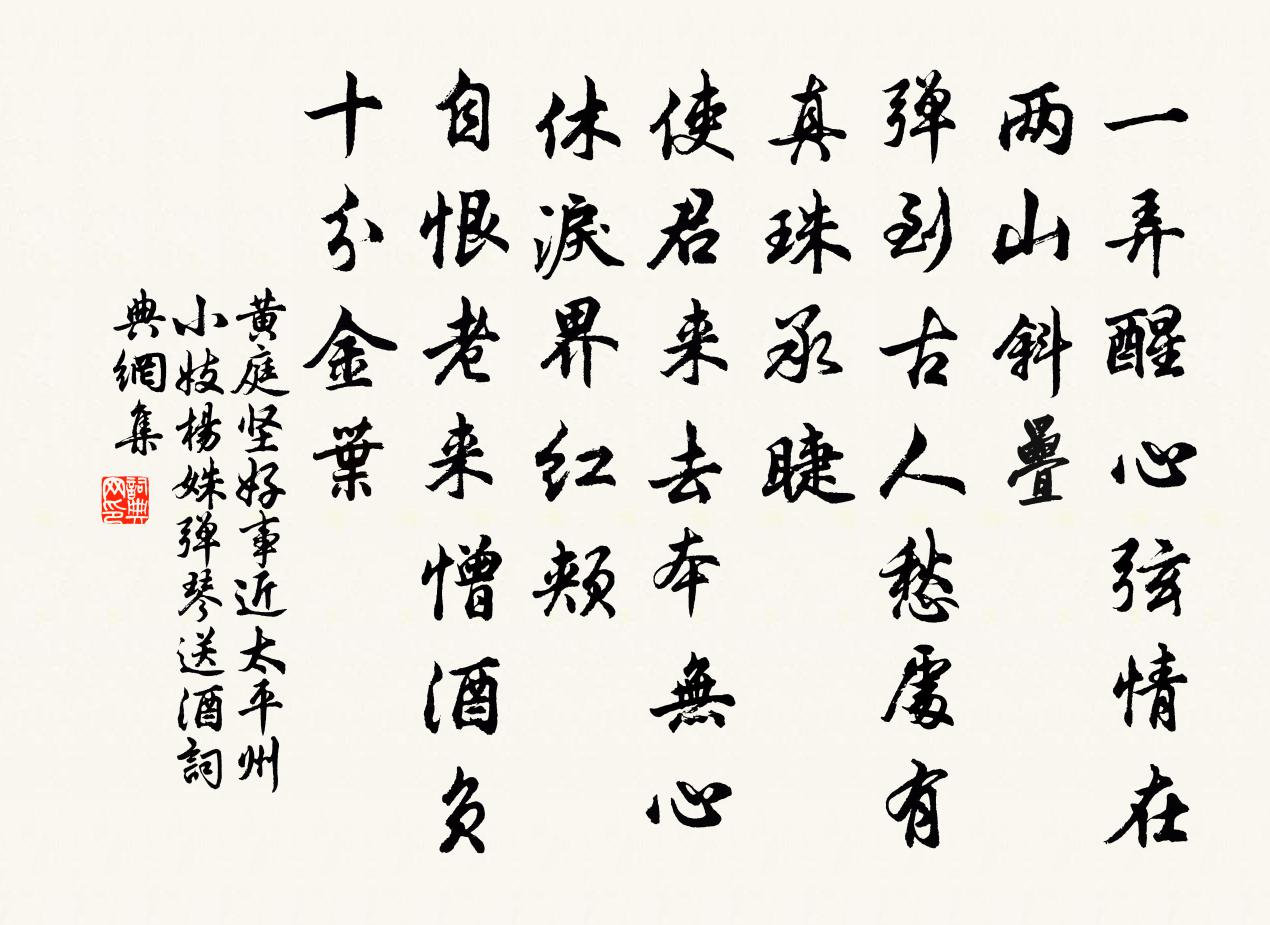 一弄醒心弦情在
两山斜疊
弹到古人愁處有
真珠承睫
使君来去本無心
休淚界红颊
自恨老来憎酒负
十分金葉
黄庭坚好事近太平州
小妓楊姝弹琴送酒詞
典網集
詞典网印